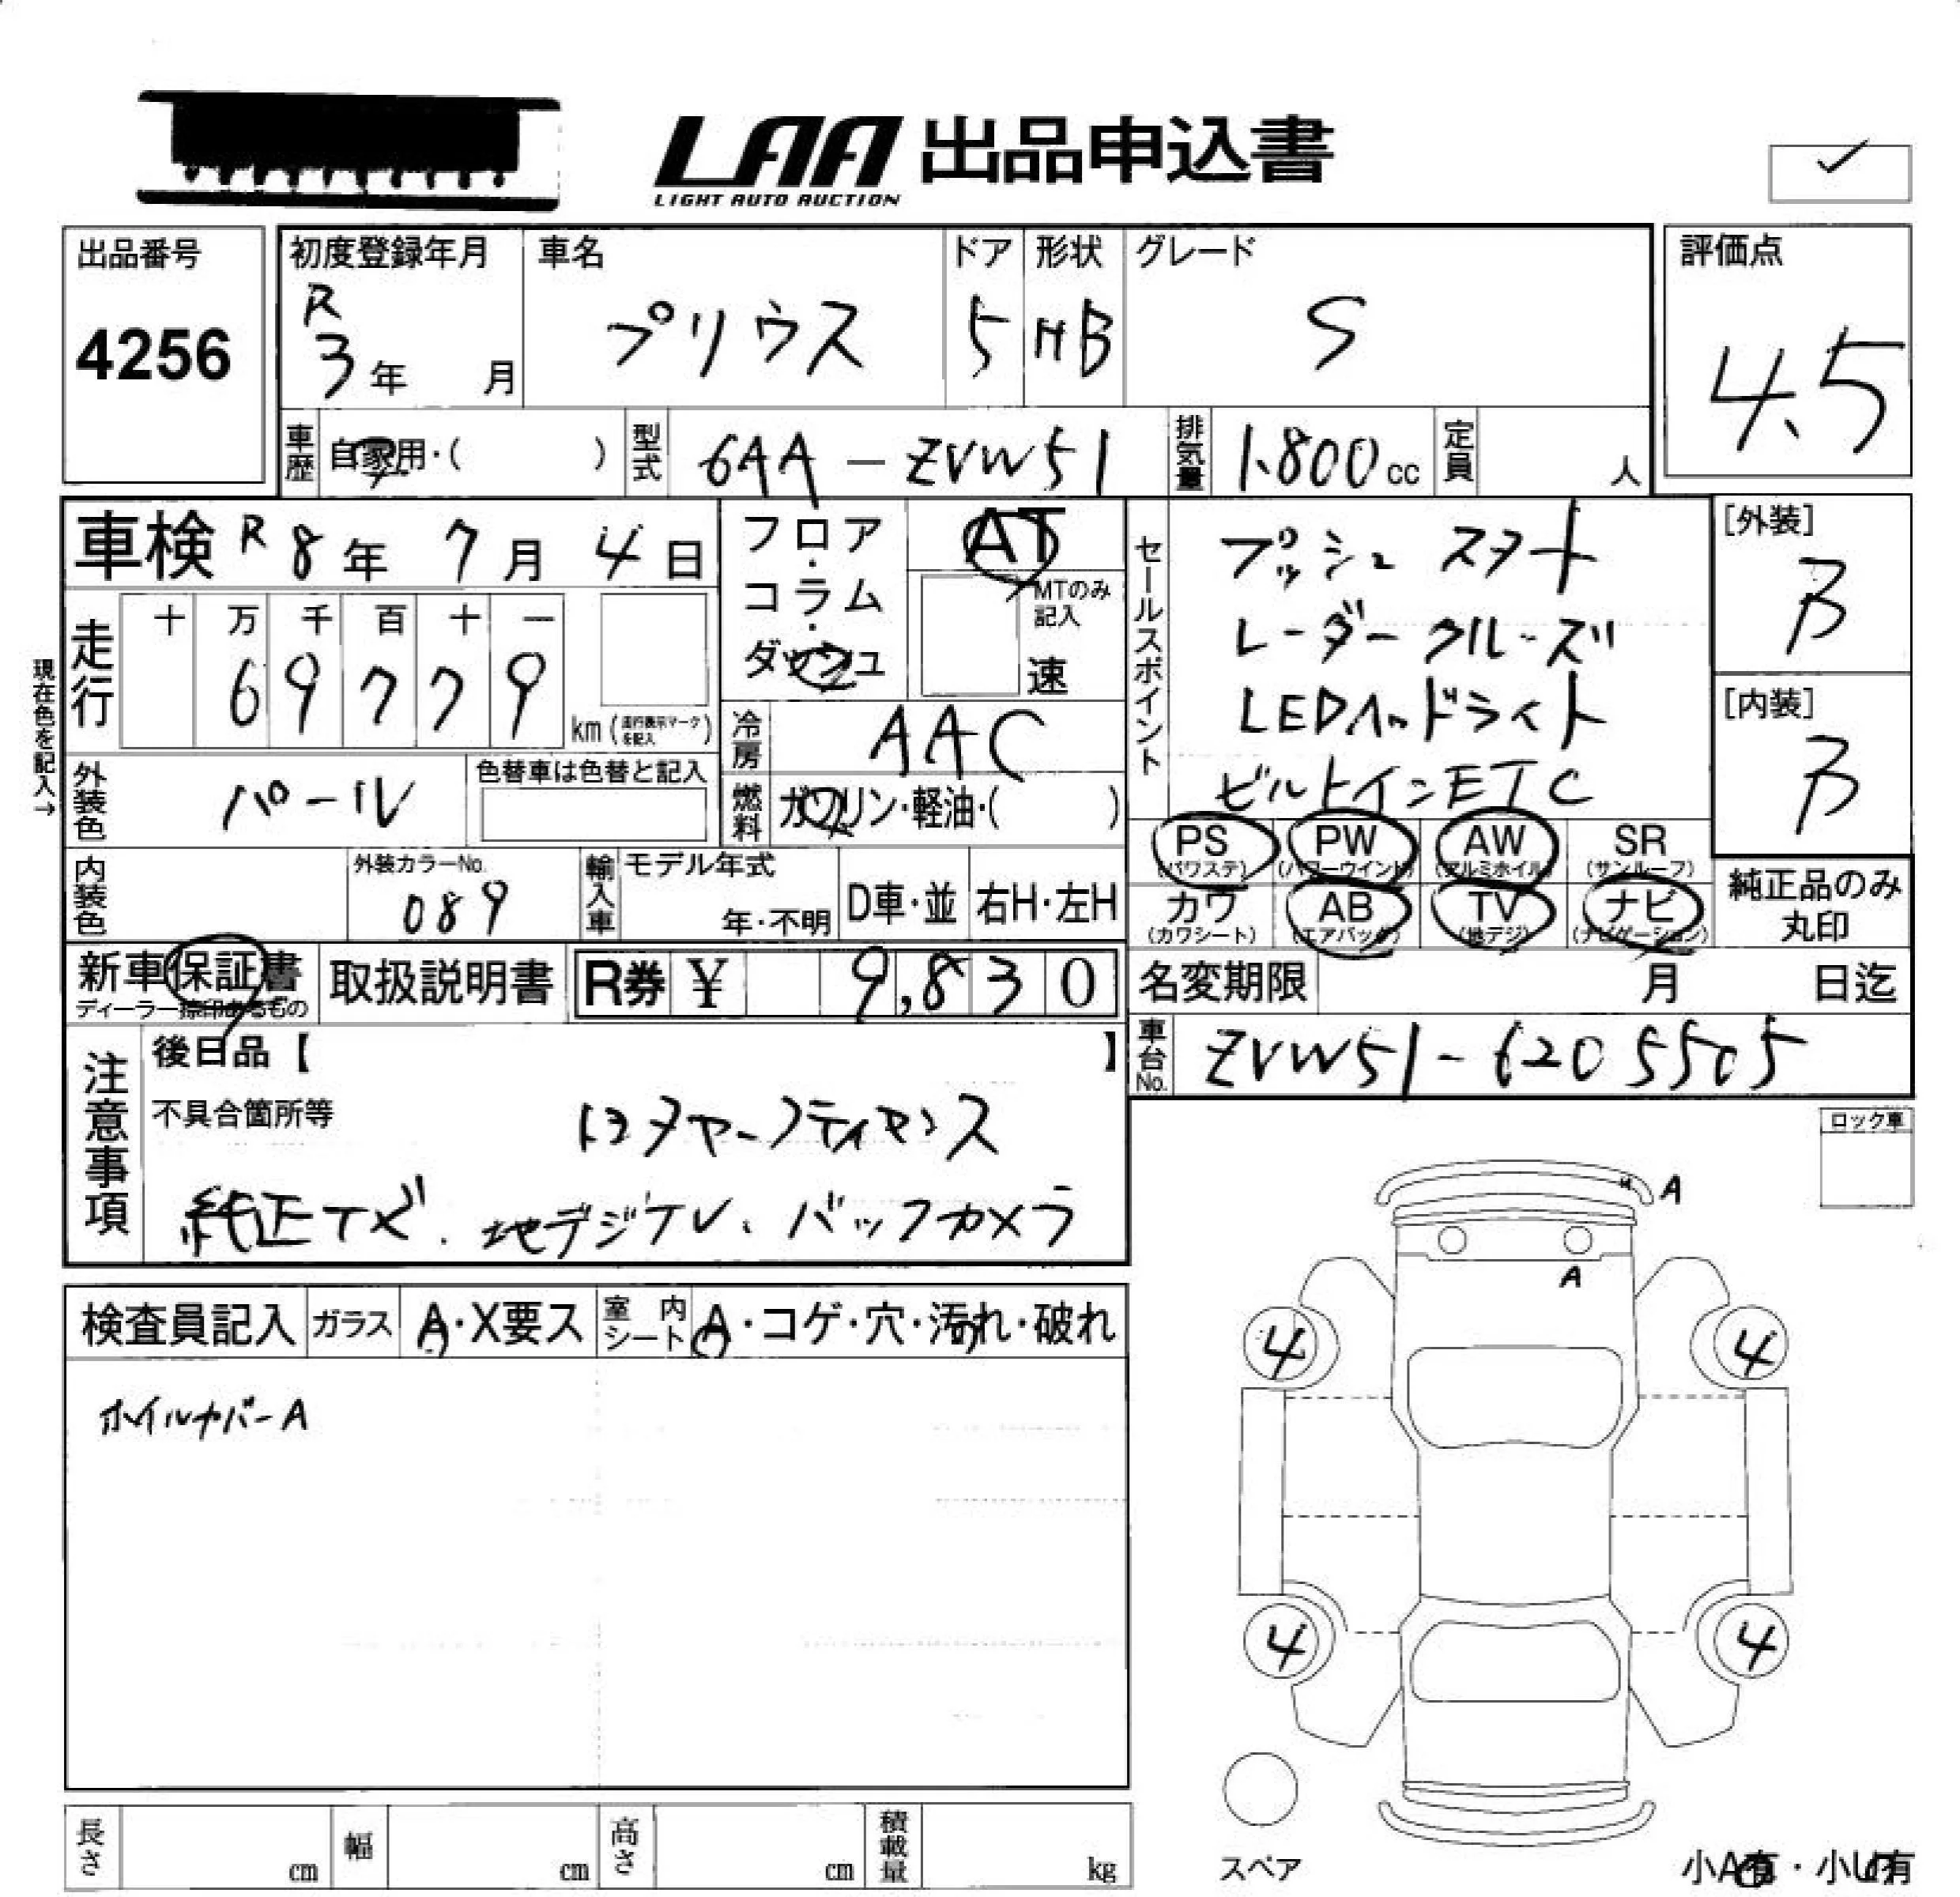 LAA 出品申込書
LIGHT AUTO AUCTION
出品番号
4256
初度登録年月
R
3年 月
車名
プリウス
ドア
5
形状
HB
グレード
S
評価点
4.5
車歴 自家用・( )
型式 6AA-ZVW51
排気量 1.800cc
定員 人
車検 R8年 7月 4日
現在色を記入→
走行 十 万 千 百 十 一
69779
km(走行表示マークを記入)
フロア・コラム・ダッシュ
AT
MTのみ記入
速
冷房 AAC
燃料 ガソリン・軽油・( )
外装色 パール
色替車は色替と記入
内装色
外装カラーNo.
089
輸入車 モデル年式
年・不明
D車・並
右H・左H
セールスポイント
プッシュスタート
レーダークルーズ
LEDヘッドライト
ビルトインETC
[外装]
B
[内装]
B
PS(パワステ) PW(パワーウインド) AW(アルミホイル) SR(サンルーフ)
カワ(カワシート) AB(エアバック) TV(地デジ) ナビ(ナビゲーション)
純正品のみ丸印
新車保証書
ディーラー捺印あるもの
取扱説明書
R券 ¥ 9,830
名変期限 月 日迄
車台No. ZVW51-6205505
注意事項
後日品【 】
不具合箇所等
純正ナビ.地デジTV.バックカメラ
ロック車
検査員記入
ガラス A・X要ス
室内シート A・コゲ・穴・汚れ・破れ
ホイルカバーA
A
A
4
4
4
4
スペア
長さ cm
幅 cm
高さ cm
積載量 kg
小A有・小U有